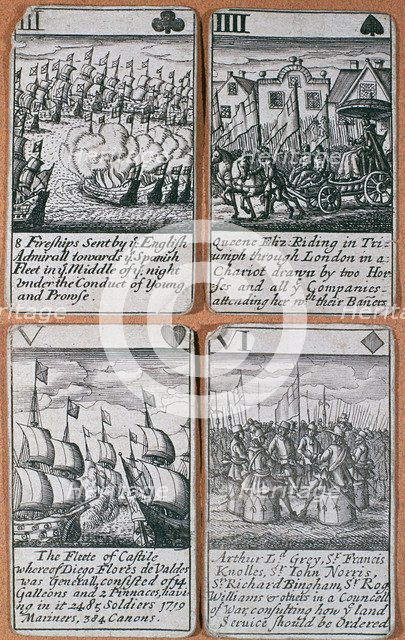 III
8 Fireships Sent by yͤ English
Admirall towards yͤ Spanish
Fleet in yͤ Middle of yͤ night
Vnder the Conduct of Young
and Prowse.
IIII
Queene Eliz: Riding in Tri-
umph through London in a
Chariot drawn by two Hor-
ses and all yͤ Companies
attending her wth. their Baners
V
The Fleete of Castile
whereof Diego Flores de Valdes
was Generall, consisted of 14
Galleons and 2 Pinnaces, hav
ing in it 2485 Soldiers 1719
Mariners, 384 Canons.
VI
Arthur Ld. Grey, Sr. Francis
Knolles, Sr. Iohn Norris,
Sr. Richard Bingham, Sr. Rog
Williams & others in a Councell
of War, consulting how yͤ land
Service should be Ordered
heritage Images
Heritage Images
heritage Images